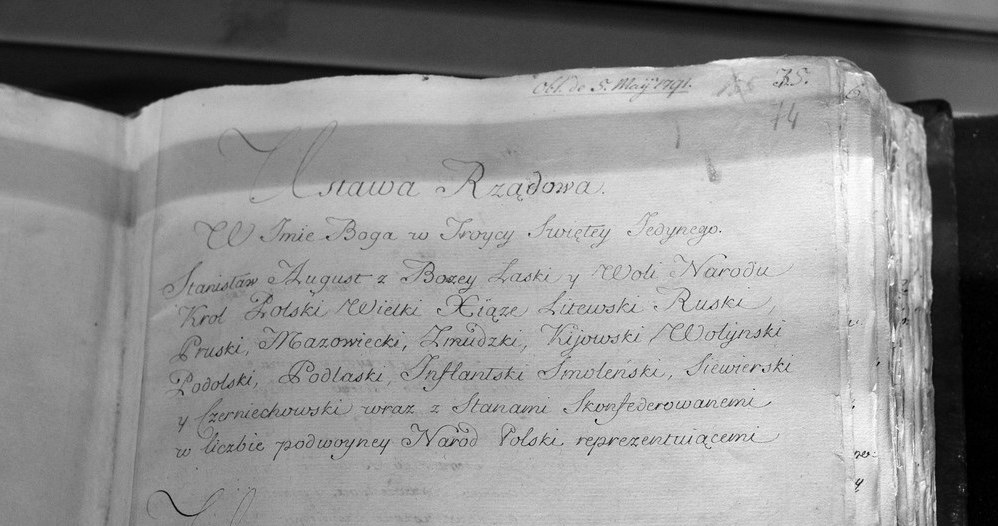 Obl. de 5. Maij 1791.
75.
74
Ustawa Rządowa.
W Imie Boga w Troycy Swiętey Jedynego.
Stanisław August z Bozey Łaski y Woli Narodu
Krol Polski Wielki Xiąze Litewski Ruski,
Pruski, Mazowiecki, Zmudzki, Kijowski, Wołyński
Podolski, Podlaski, Inflantski Smoleński, Siewierski
y Czerniechowski wraz z Stanami Skonfederowanemi
w liczbie podwoyney Naród Polski reprezentuiącemi